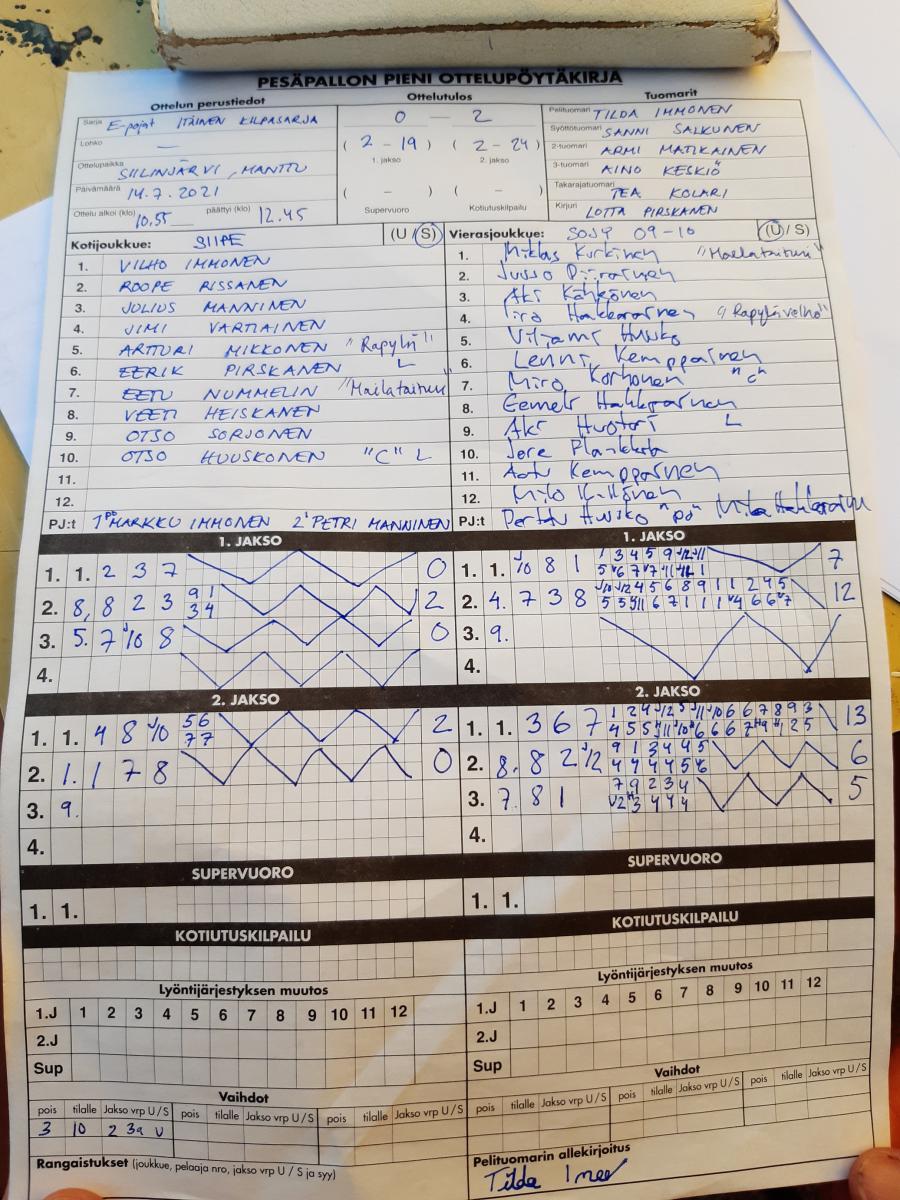 PESÄPALLON PIENI OTTELUPÖYTÄKIRJA
Ottelun perustiedot
Sarja E-pojat ITÄINEN KILPASARJA
Lohko —
Ottelupaikka SIILINJÄRVI, MANTTU
Päivämäärä 14.7.2021
Ottelu alkoi (klo) 10.55 päättyi (klo) 12.45
Ottelutulos
0 — 2
(2 - 19) (2 - 24)
1. jakso 2. jakso
( - ) ( - )
Supervuoro Kotiutuskilpailu
Tuomarit
Pelituomari TILDA IMMONEN
Syöttötuomari SANNI SALKUNEN
2-tuomari ARMI MATIKAINEN
3-tuomari AINO KESKIÖ
Takarajatuomari TEA KOLARI
Kirjuri LOTTA PIRSKANEN
Kotijoukkue: SIIPE (U / S)
1. VILHO IMMONEN
2. ROOPE RISSANEN
3. JULIUS MANNINEN
4. JIMI VARTIAINEN
5. ARTTURI MIKKONEN "Räpylä"
6. EERIK PIRSKANEN L
7. EETU NUMMELIN "Mailataituri"
8. VEETI HEISKANEN
9. OTSO SORJONEN
10. OTSO HUUSKONEN "C" L
11.
12.
PJ:t 1 PJ MARKKU IMMONEN 2 PETRI MANNINEN
Vierasjoukkue: SOJY 09-10 (U / S)
1. Miklas Kurkinen "Mailataituri"
2. Juuso Piirainen
3. Aki Kähkönen
4. Hakkarainen "Räpylävelho"
5. Viljami Huusko
6. Lenni Kemppainen
7. Miro Korhonen "C"
8. Eemeli Hakkarainen
9. Aki Huotari L
10. Jere
11. Aatu Kemppainen
12. Milo
PJ:t Perttu Huusko "PJ" Mika Hakkarainen
1. JAKSO
1. 1. 2 3 7 0
2. 8, 8 2 3 9 1 2
3 4
3. 5. 7 J10 8 0
4.
1. JAKSO
1. 1. J10 8 1 1 3 4 5 9 J12 J11 7
2. 4. 7 3 8 J10 J12 4 5 6 8 9 1 1 2 4 5 12
3. 9.
4.
2. JAKSO
1. 1. 4 8 J10 5 6 2
7 7
2. 1. 1 7 8 0
3. 9.
4.
2. JAKSO
1. 1. 3 6 7 1 2 4 J12 5 J11 J10 6 6 7 8 9 3 13
2. 8. 8 2 J12 9 1 3 4 4 5 6
4 4 4 4 5 6
3. 7. 8 1 7 9 2 3 4 5
4.
SUPERVUORO
1. 1.
SUPERVUORO
1. 1.
KOTIUTUSKILPAILU
KOTIUTUSKILPAILU
Lyöntijärjestyksen muutos
1.J 1 2 3 4 5 6 7 8 9 10 11 12
2.J
Sup
Lyöntijärjestyksen muutos
1.J 1 2 3 4 5 6 7 8 9 10 11 12
2.J
Sup
Vaihdot
pois tilalle Jakso vrp U/S pois tilalle Jakso vrp U/S pois tilalle Jakso vrp U/S
3 10 2 3a U
Vaihdot
pois tilalle Jakso vrp U/S pois tilalle Jakso vrp U/S pois tilalle Jakso vrp U/S
Rangaistukset (joukkue, pelaaja nro, jakso vrp U / S ja syy)
Pelituomarin allekirjoitus
Tilda